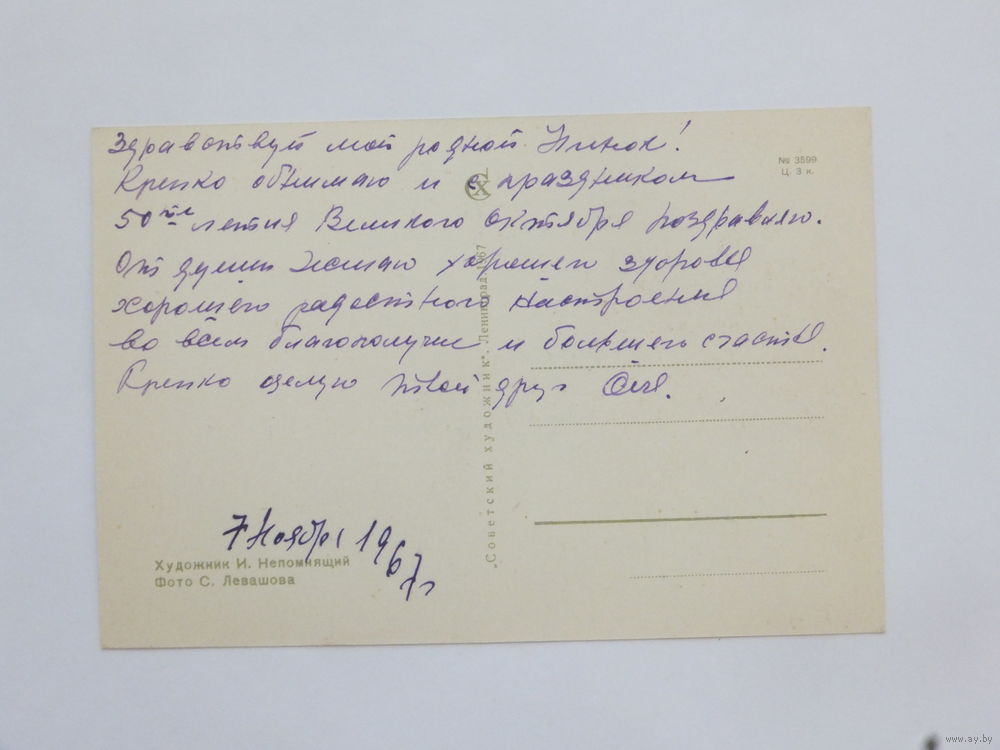 Здравствуй мой родной Нинок!
Крепко обнимаю и с праздником
50ти летия Великого Октября поздравляю.
От души желаю хорошего здоровья
хорошего радостного настроения
во всём благополучия и большего счастья.
Крепко целую твой друг
7 Ноября 1967г
№ 3599
Ц. 3 к.
СХ
„Советский художник". Ленинград. 1967
Художник И. Непомнящий
Фото С. Левашова
www.ay.by